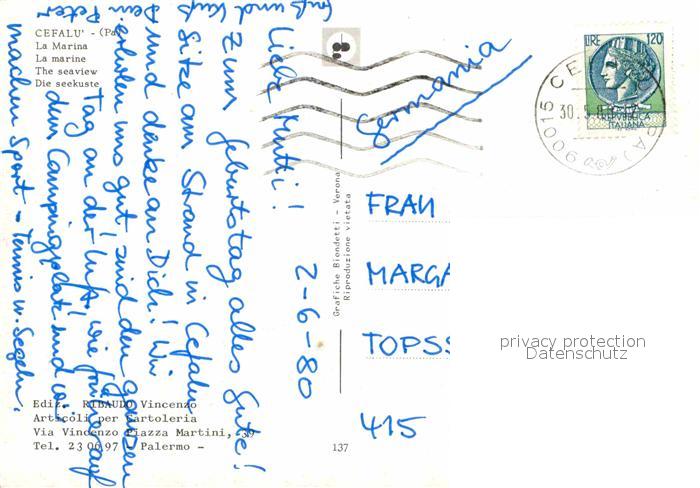 CEFALU' - (Pa)
La Marina
La marine
The seaview
Die seekuste
2-6-80
Liebe Mutti!
Zum Geburtstag alles Gute!
Sitze am Strand in Cefalu
und denke an Dich! Wir
erholen uns gut, sind den ganzen
Tag an der Luft, wie früher auf
dem Campingplatz und wir
machen Sport - Tennis u. Segeln.
Gruß und Kuß
Dein Peter
Ediz. RIBAUDO Vincenzo
Articoli per Cartoleria
Via Vincenzo Piazza Martini, 39
Tel. 230697 - Palermo -
Grafiche Biondetti - Verona
Riproduzione vietata
137
Germania
LIRE 120
REPVBBLICA
ITALIANA
90015 CE
30.5.8
PA)
FRAU
MARGA
TOPSS
415
privacy protection
Datenschutz